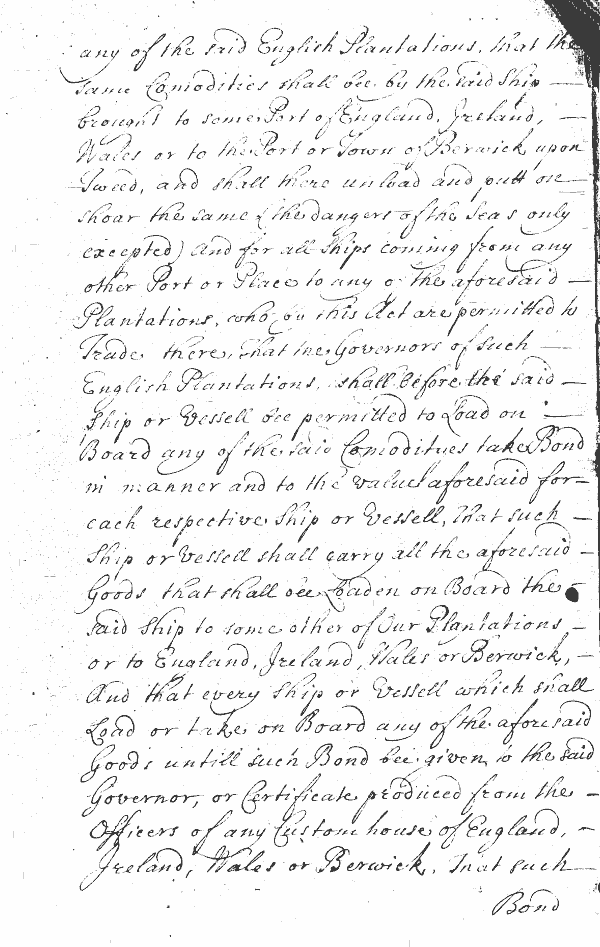 any of the said English Plantations, that the
same Comodities shall bee by the said Ship —
brought to some Port of England, Ireland, —
Wales or to the Port or Town of Berwick upon
Tweed, and shall there unload and putt on —
shoar the same (the dangers of the Seas only
excepted) And for all Ships coming from any
other Port or Place to any of the aforesaid —
Plantations, who by this Act are permitted to
Trade there, that the Governors of such —
English Plantations, shall before the said —
Ship or Vessell bee permitted to Load on —
Board any of the said Comodityes take Bond
in manner and to the value aforesaid for —
each respective Ship or Vessell, that such —
Ship or Vessell shall carry all the aforesaid —
Goods that shall bee Laden on Board the
said Ship to some other of Our Plantations —
or to England, Ireland, Wales or Berwick, —
And that every Ship or Vessell which shall
Load or take on Board any of the aforesaid
Goods untill such Bond bee given to the said
Governor, or Certificate produced from the —
Officers of any Custom house of England, —
Ireland, Wales or Berwick, That such —
Bond